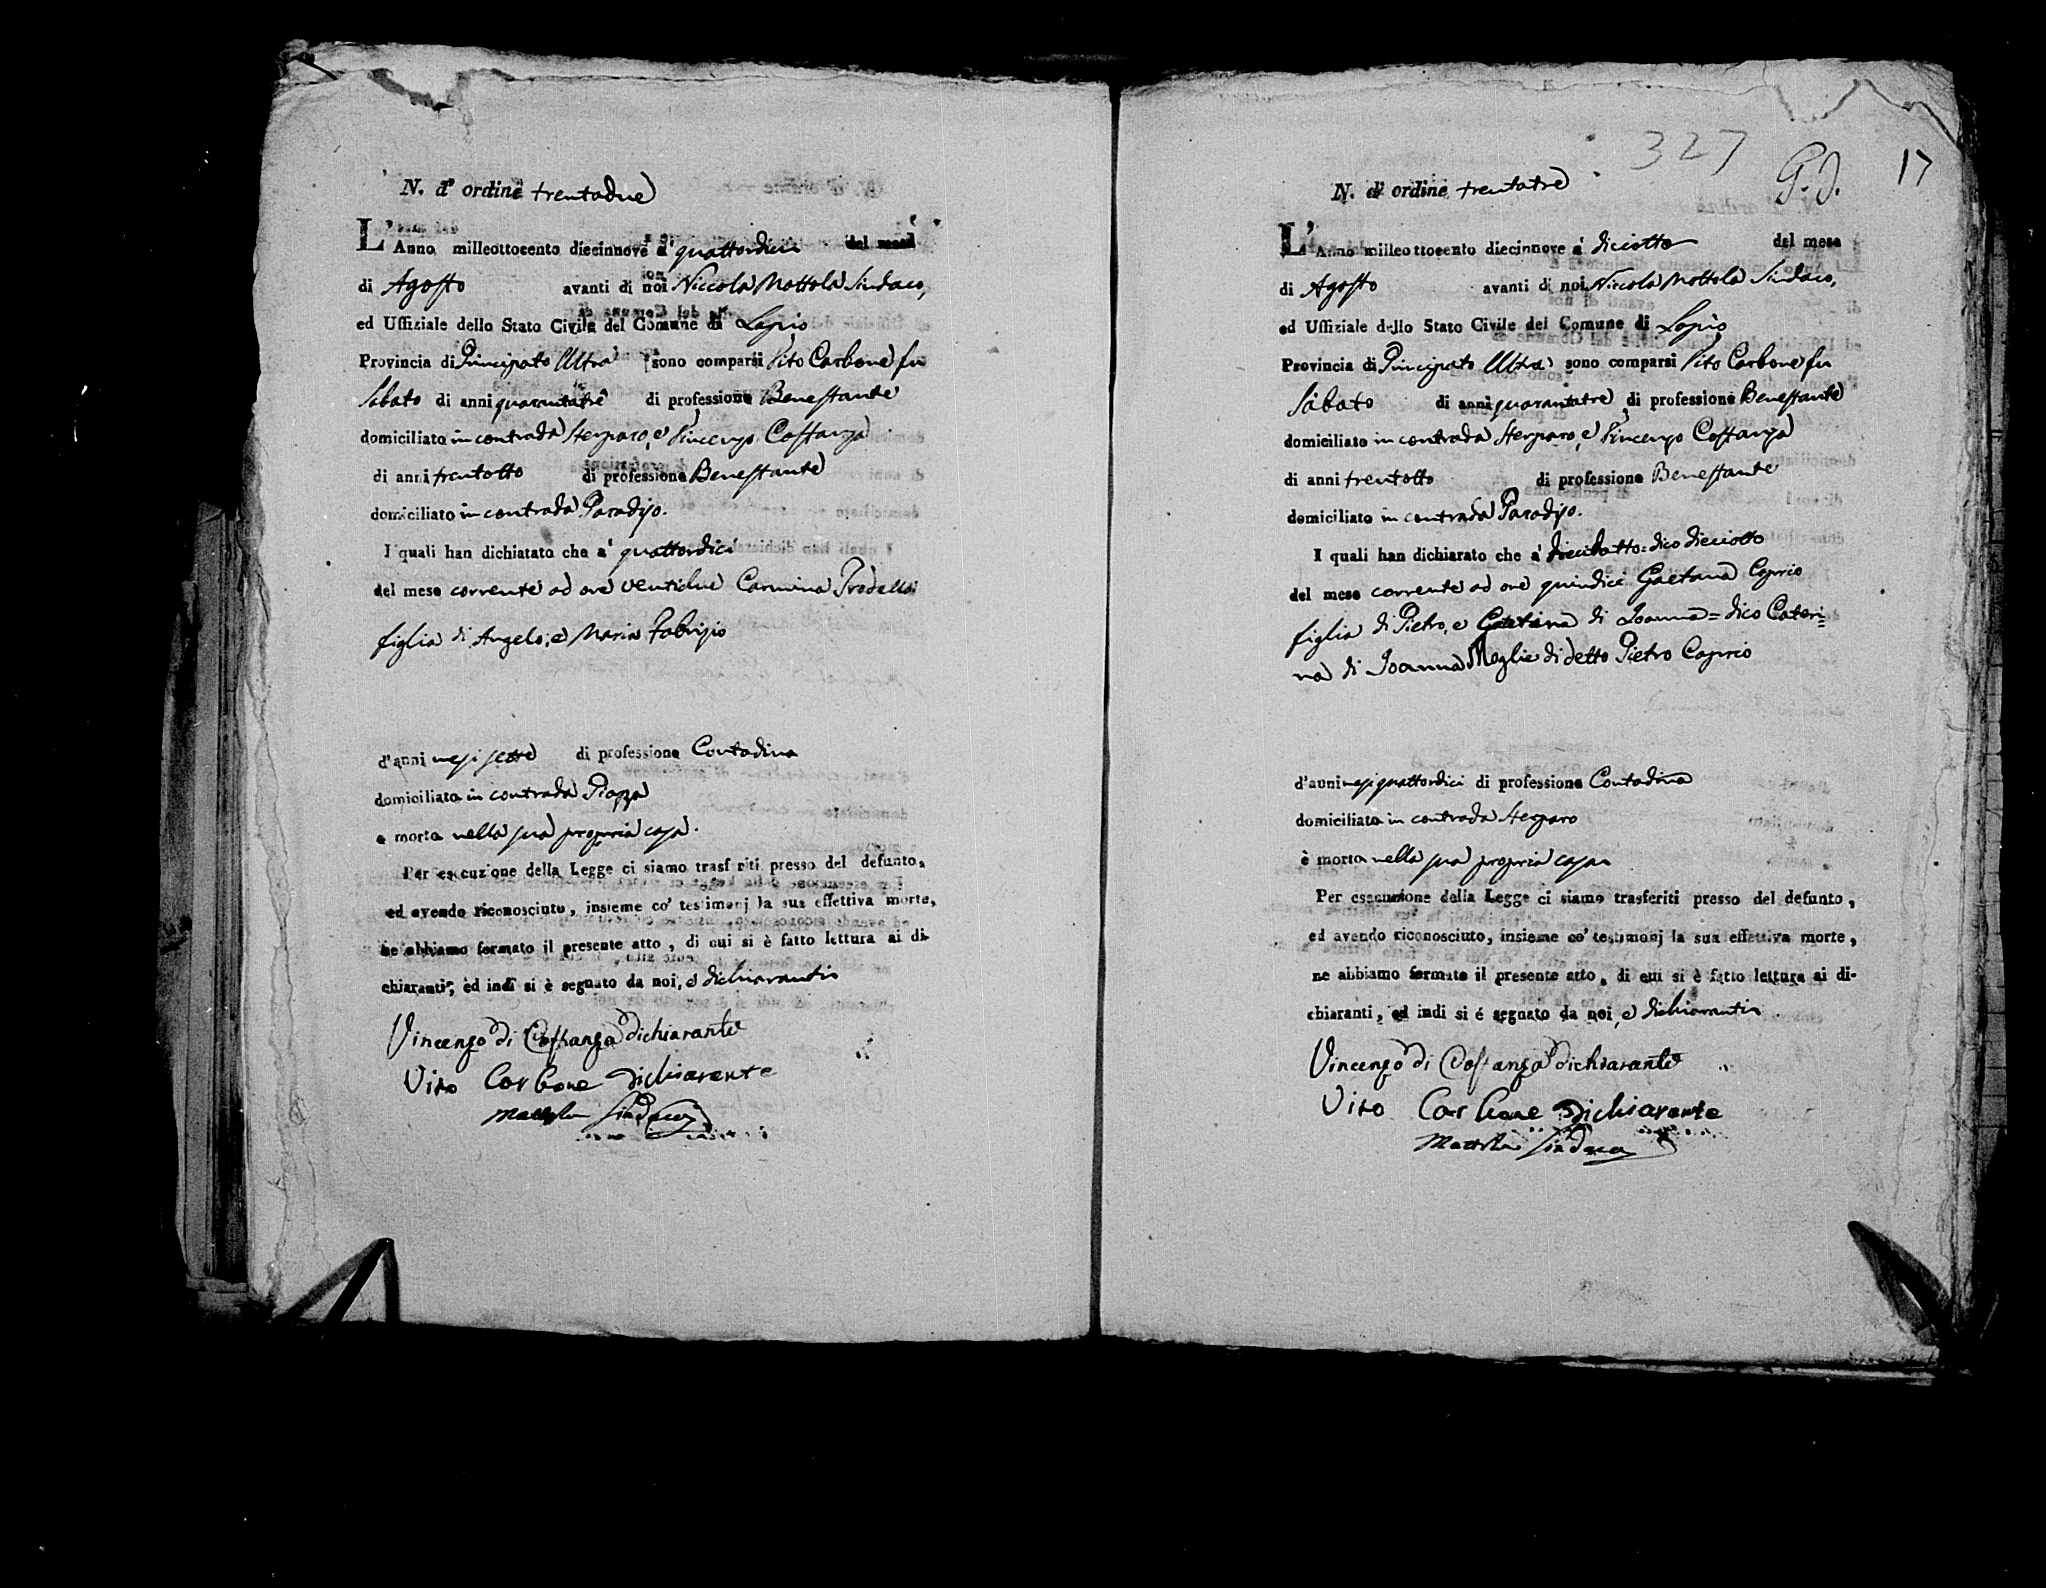 N. d'ordine trentadue
L'Anno milleottocento diecinnove a' quattordici del mese
di Agosto avanti di noi Niccola Mottola Sindaco,
ed Uffiziale dello Stato Civile del Comune di Lapio
Provincia di Principato Ultra sono comparsi Vito Carbone fu
Sabato di anni quarantatre di professione Benestante
domiciliato in contrada Sterparo, e Vincenzo Costanza
di anni trentotto di professione Benestante
domiciliato in contrada Paradiso.
I quali han dichiatato che a' quattordici
del mese corrente ad ore ventidue Carmina
figlia di Angelo, e Maria Fabrizio
d'anni mesi sette di professione Contadina
domiciliata in contrada Piazza
e morta nella sua propria casa.
Per esecuzione della Legge ci siamo trasf riti presso del defunto,
ed avendo riconosciuto, insieme co' testimonj la sua effettiva morte,
ne abbiamo formato il presente atto, di cui si è fatto lettura ai di-
chiaranti, ed indi si è segnato da noi, e dichiaranti
Vincenzo di Costanza dichiarante
Vito Carbone dichiarente
Mottola Sindaco
327
G. J.
17
N. d' ordine trentatre
L'Anno milleottocento diecinnove a' diciotto del mese
di Agosto avanti di noi Niccola Mottola Sindaco,
ed Uffiziale dello Stato Civile del Comune di Lapio
Provincia di Principato Ultra sono comparsi Vito Carbone fu
Sabato di anni quarantatre di professione Benestante
domiciliato in contrada Sterparo, e Vincenzo Costanza
di anni trentotto di professione Benestante
domiciliato in contrada Paradiso.
I quali han dichiarato che a' dieciotto = dico dieciotto
del mese corrente ad ore quindici Gaetana Caprio
figlia di Pietro, e Gaetana di Joanna = dico Cateri=
na di Joanna Moglie di detto Pietro Caprio
d'anni mesi quattordici di professione Contadina
domiciliata in contrada Sterparo
è morta nella sua propria casa
Per esecuzione della Legge ci siamo trasferiti presso del defunto,
ed avendo riconosciuto, insieme co' testimonj la sua effettiva morte,
ne abbiamo formato il presente atto, di cui si è fatto lettura ai di-
chiaranti, ed indi si é segnato da noi, e dichiaranti
Vincenzo di Costanza dichiarante
Vito Carbone dichiarente
Mottola Sindaco